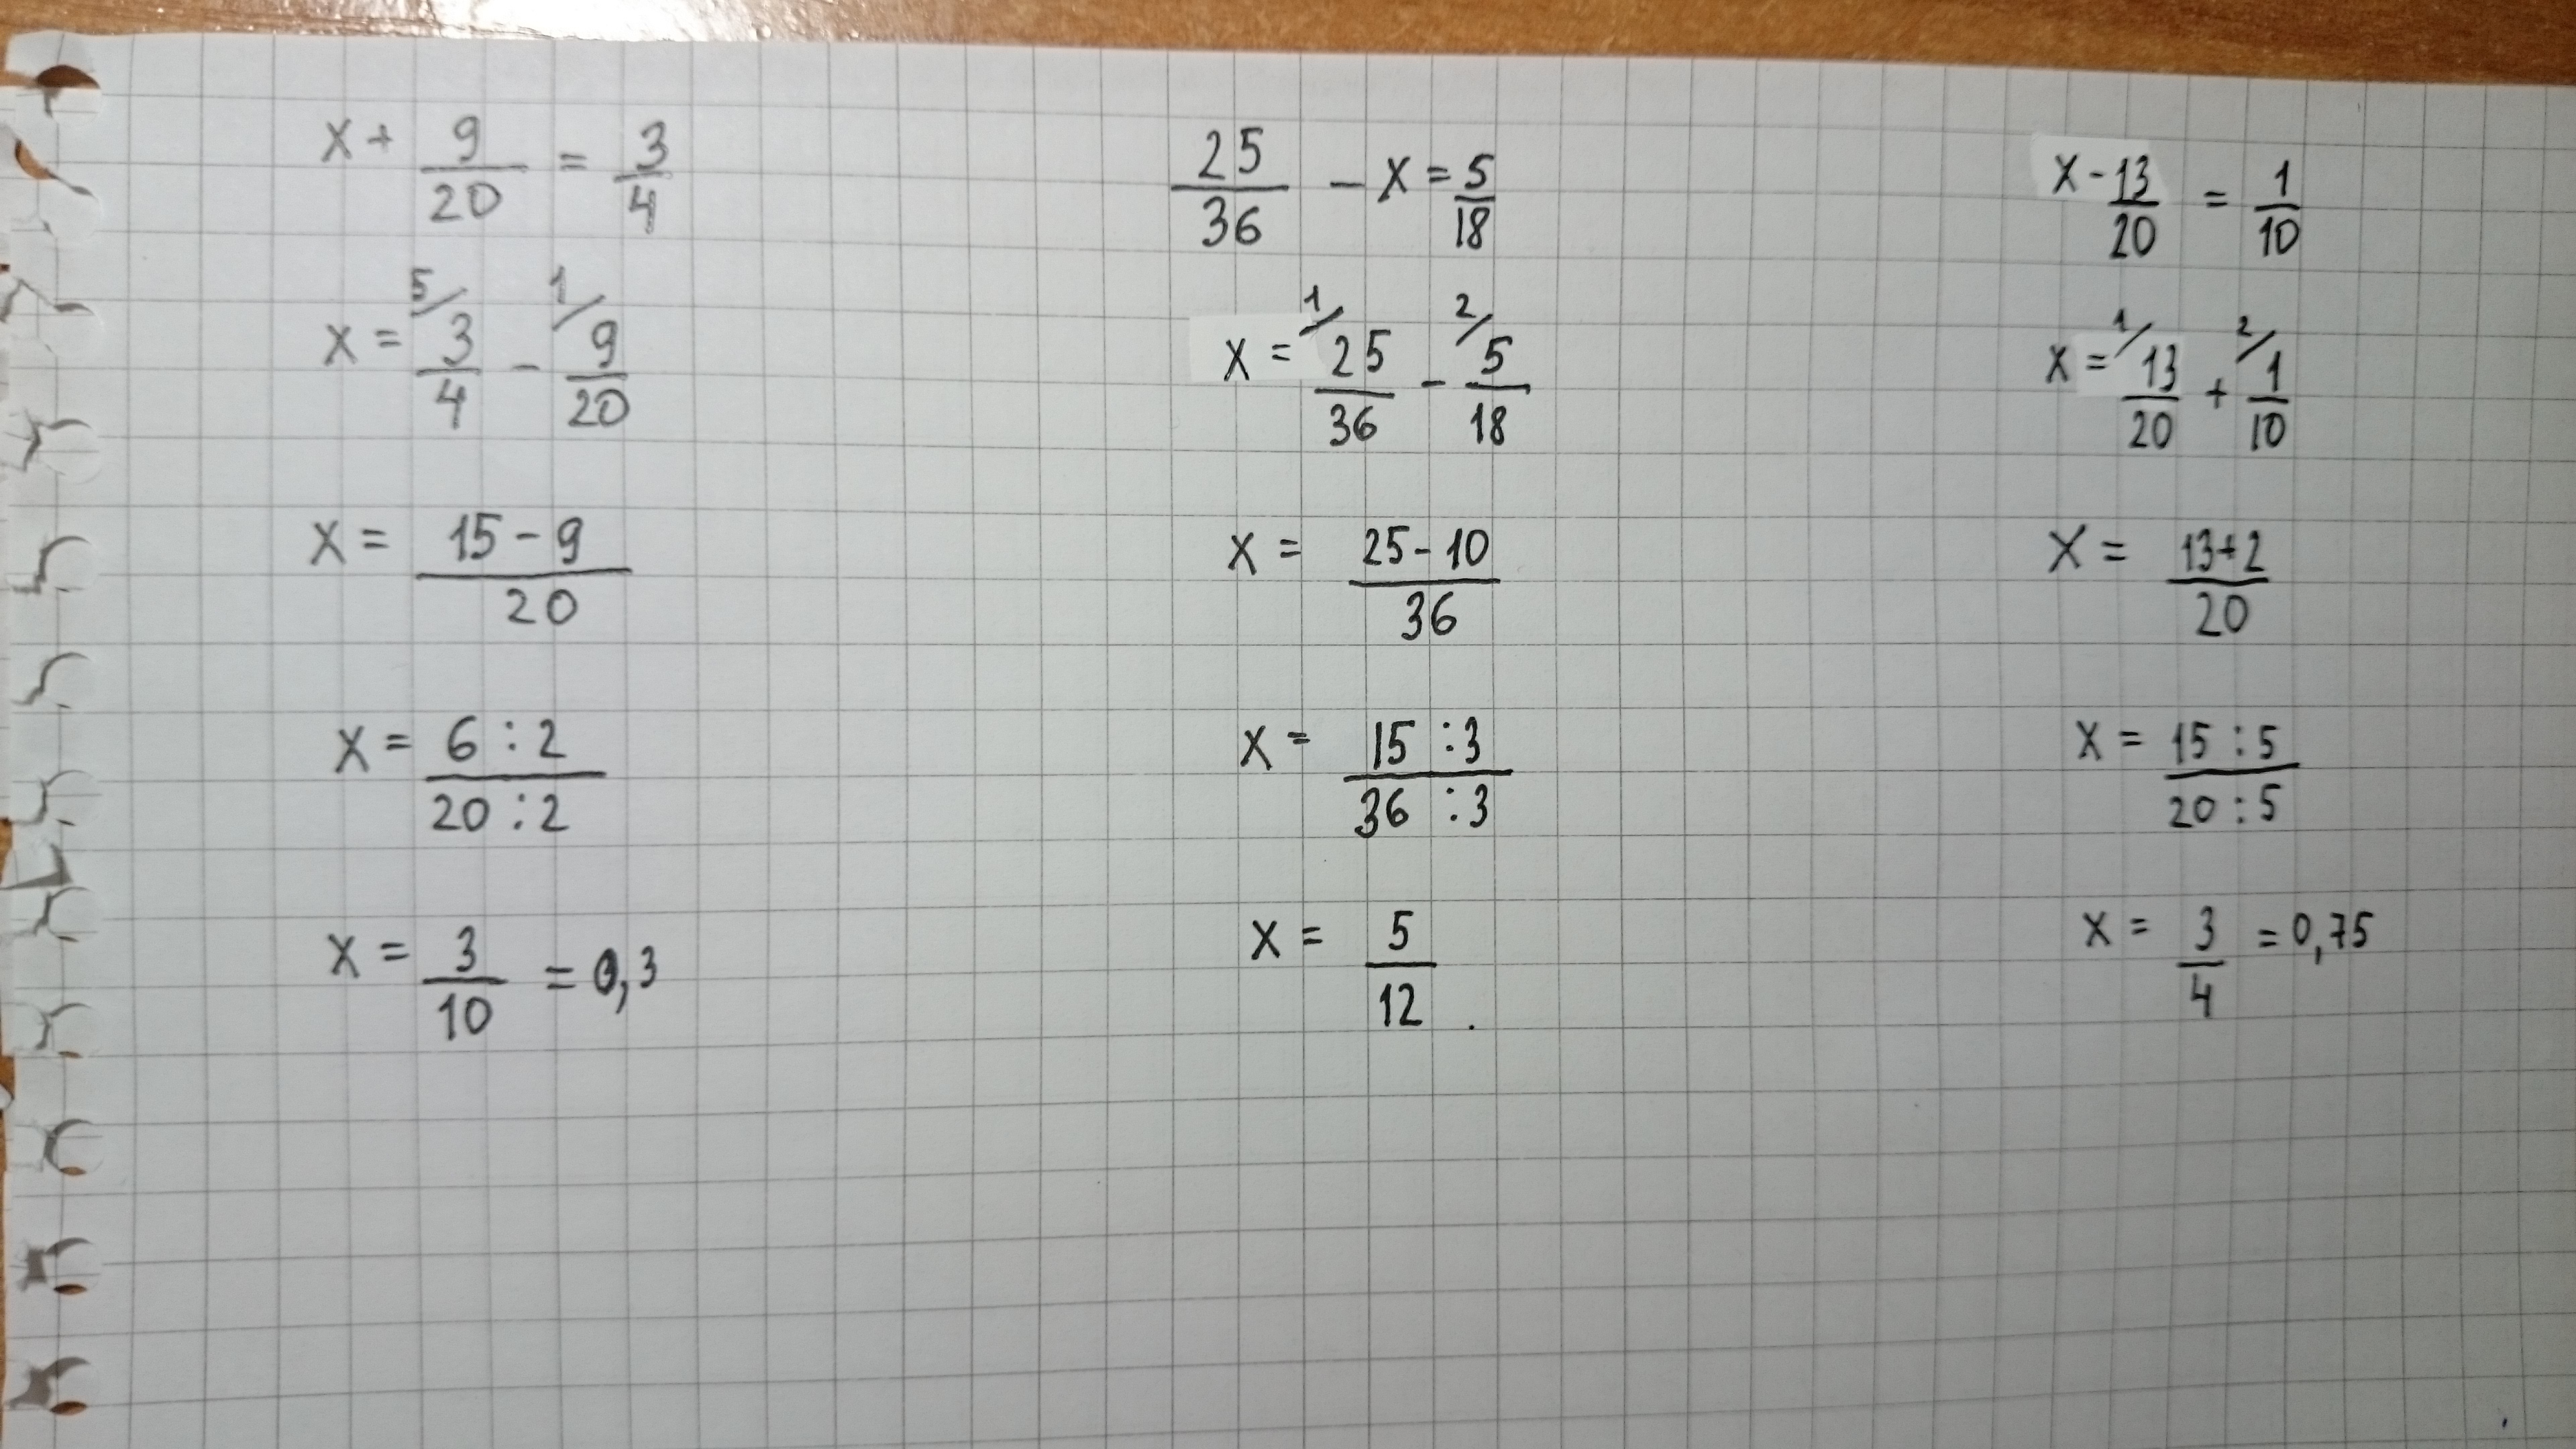 x + 9/20 = 3/4
x = 5/ 3/4 - 1/ 9/20
x = (15 - 9)/20
x = (6 : 2)/(20 : 2)
x = 3/10 = 0,3
25/36 - x = 5/18
x = 1/ 25/36 - 2/ 5/18
x = (25 - 10)/36
x = (15 : 3)/(36 : 3)
x = 5/12 .
x - 13/20 = 1/10
x = 1/ 13/20 + 2/ 1/10
x = (13 + 2)/20
x = (15 : 5)/(20 : 5)
x = 3/4 = 0,75